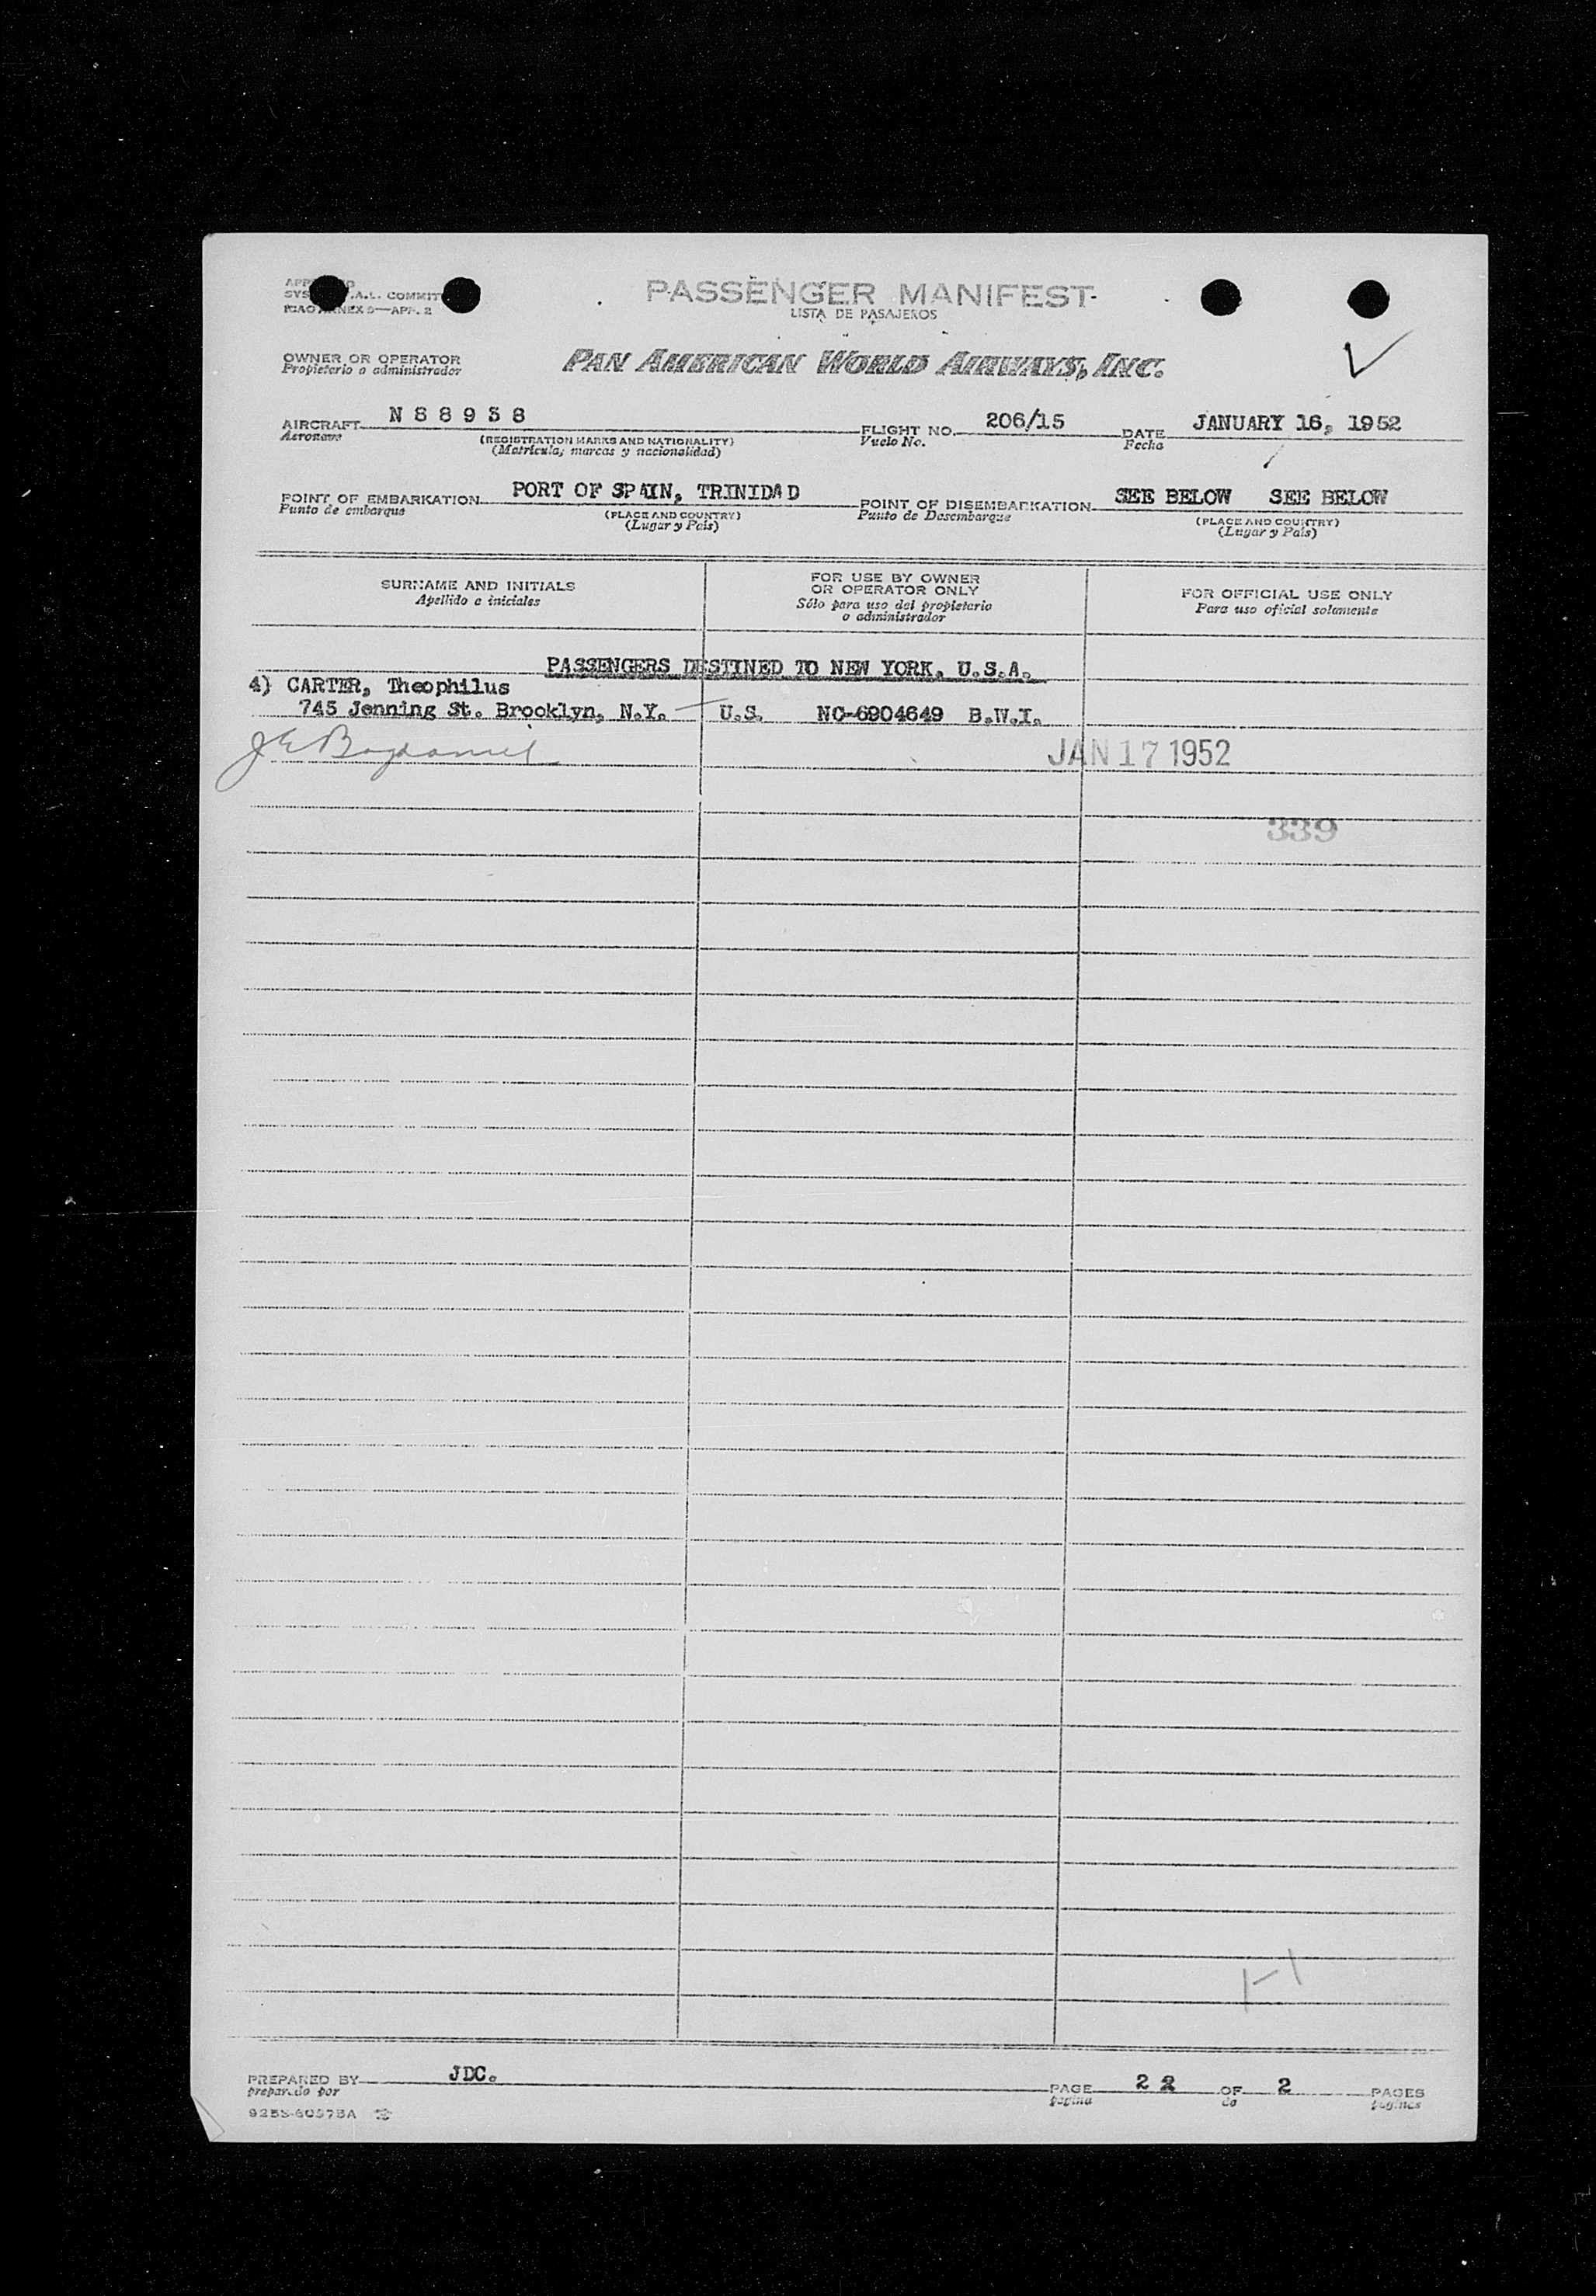 PASSENGER MANIFEST
LISTA DE PASAJEROS
ICAO ANNEX 9—APP. 2
OWNER OR OPERATOR
Propietario o administrador
PAN AMERICAN WORLD AIRWAYS, INC.
AIRCRAFT N 88938 FLIGHT NO. 206/15 DATE JANUARY 16, 1952
Aeronave (REGISTRATION MARKS AND NATIONALITY) Vuelo No. Fecha
(Matrícula, marcas y nacionalidad)
POINT OF EMBARKATION PORT OF SPAIN, TRINIDAD POINT OF DISEMBARKATION SEE BELOW SEE BELOW
Punto de embarque (PLACE AND COUNTRY) Punto de Desembarque (PLACE AND COUNTRY)
(Lugar y País) (Lugar y País)
SURNAME AND INITIALS FOR USE BY OWNER OR OPERATOR ONLY FOR OFFICIAL USE ONLY
Apellido e iniciales Sólo para uso del propietario o administrador Para uso oficial solamente
PASSENGERS DESTINED TO NEW YORK, U.S.A.
4) CARTER, Theophilus
745 Jenning St. Brooklyn, N.Y. U.S. NC-6904649 B.W.I.
JAN 17 1952
339
PREPARED BY JDC. PAGE 2 2 OF 2 PAGES
preparado por página de páginas